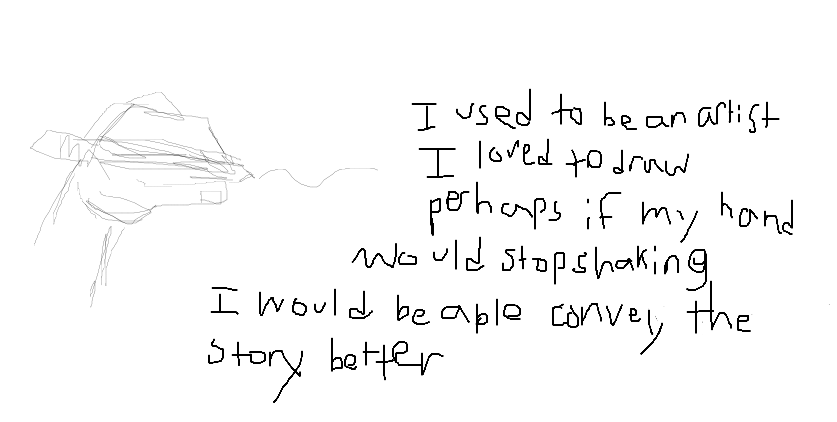 I used to be an artist
I loved to draw
perhaps if my hand
would stop shaking
I would be able convey the
story better